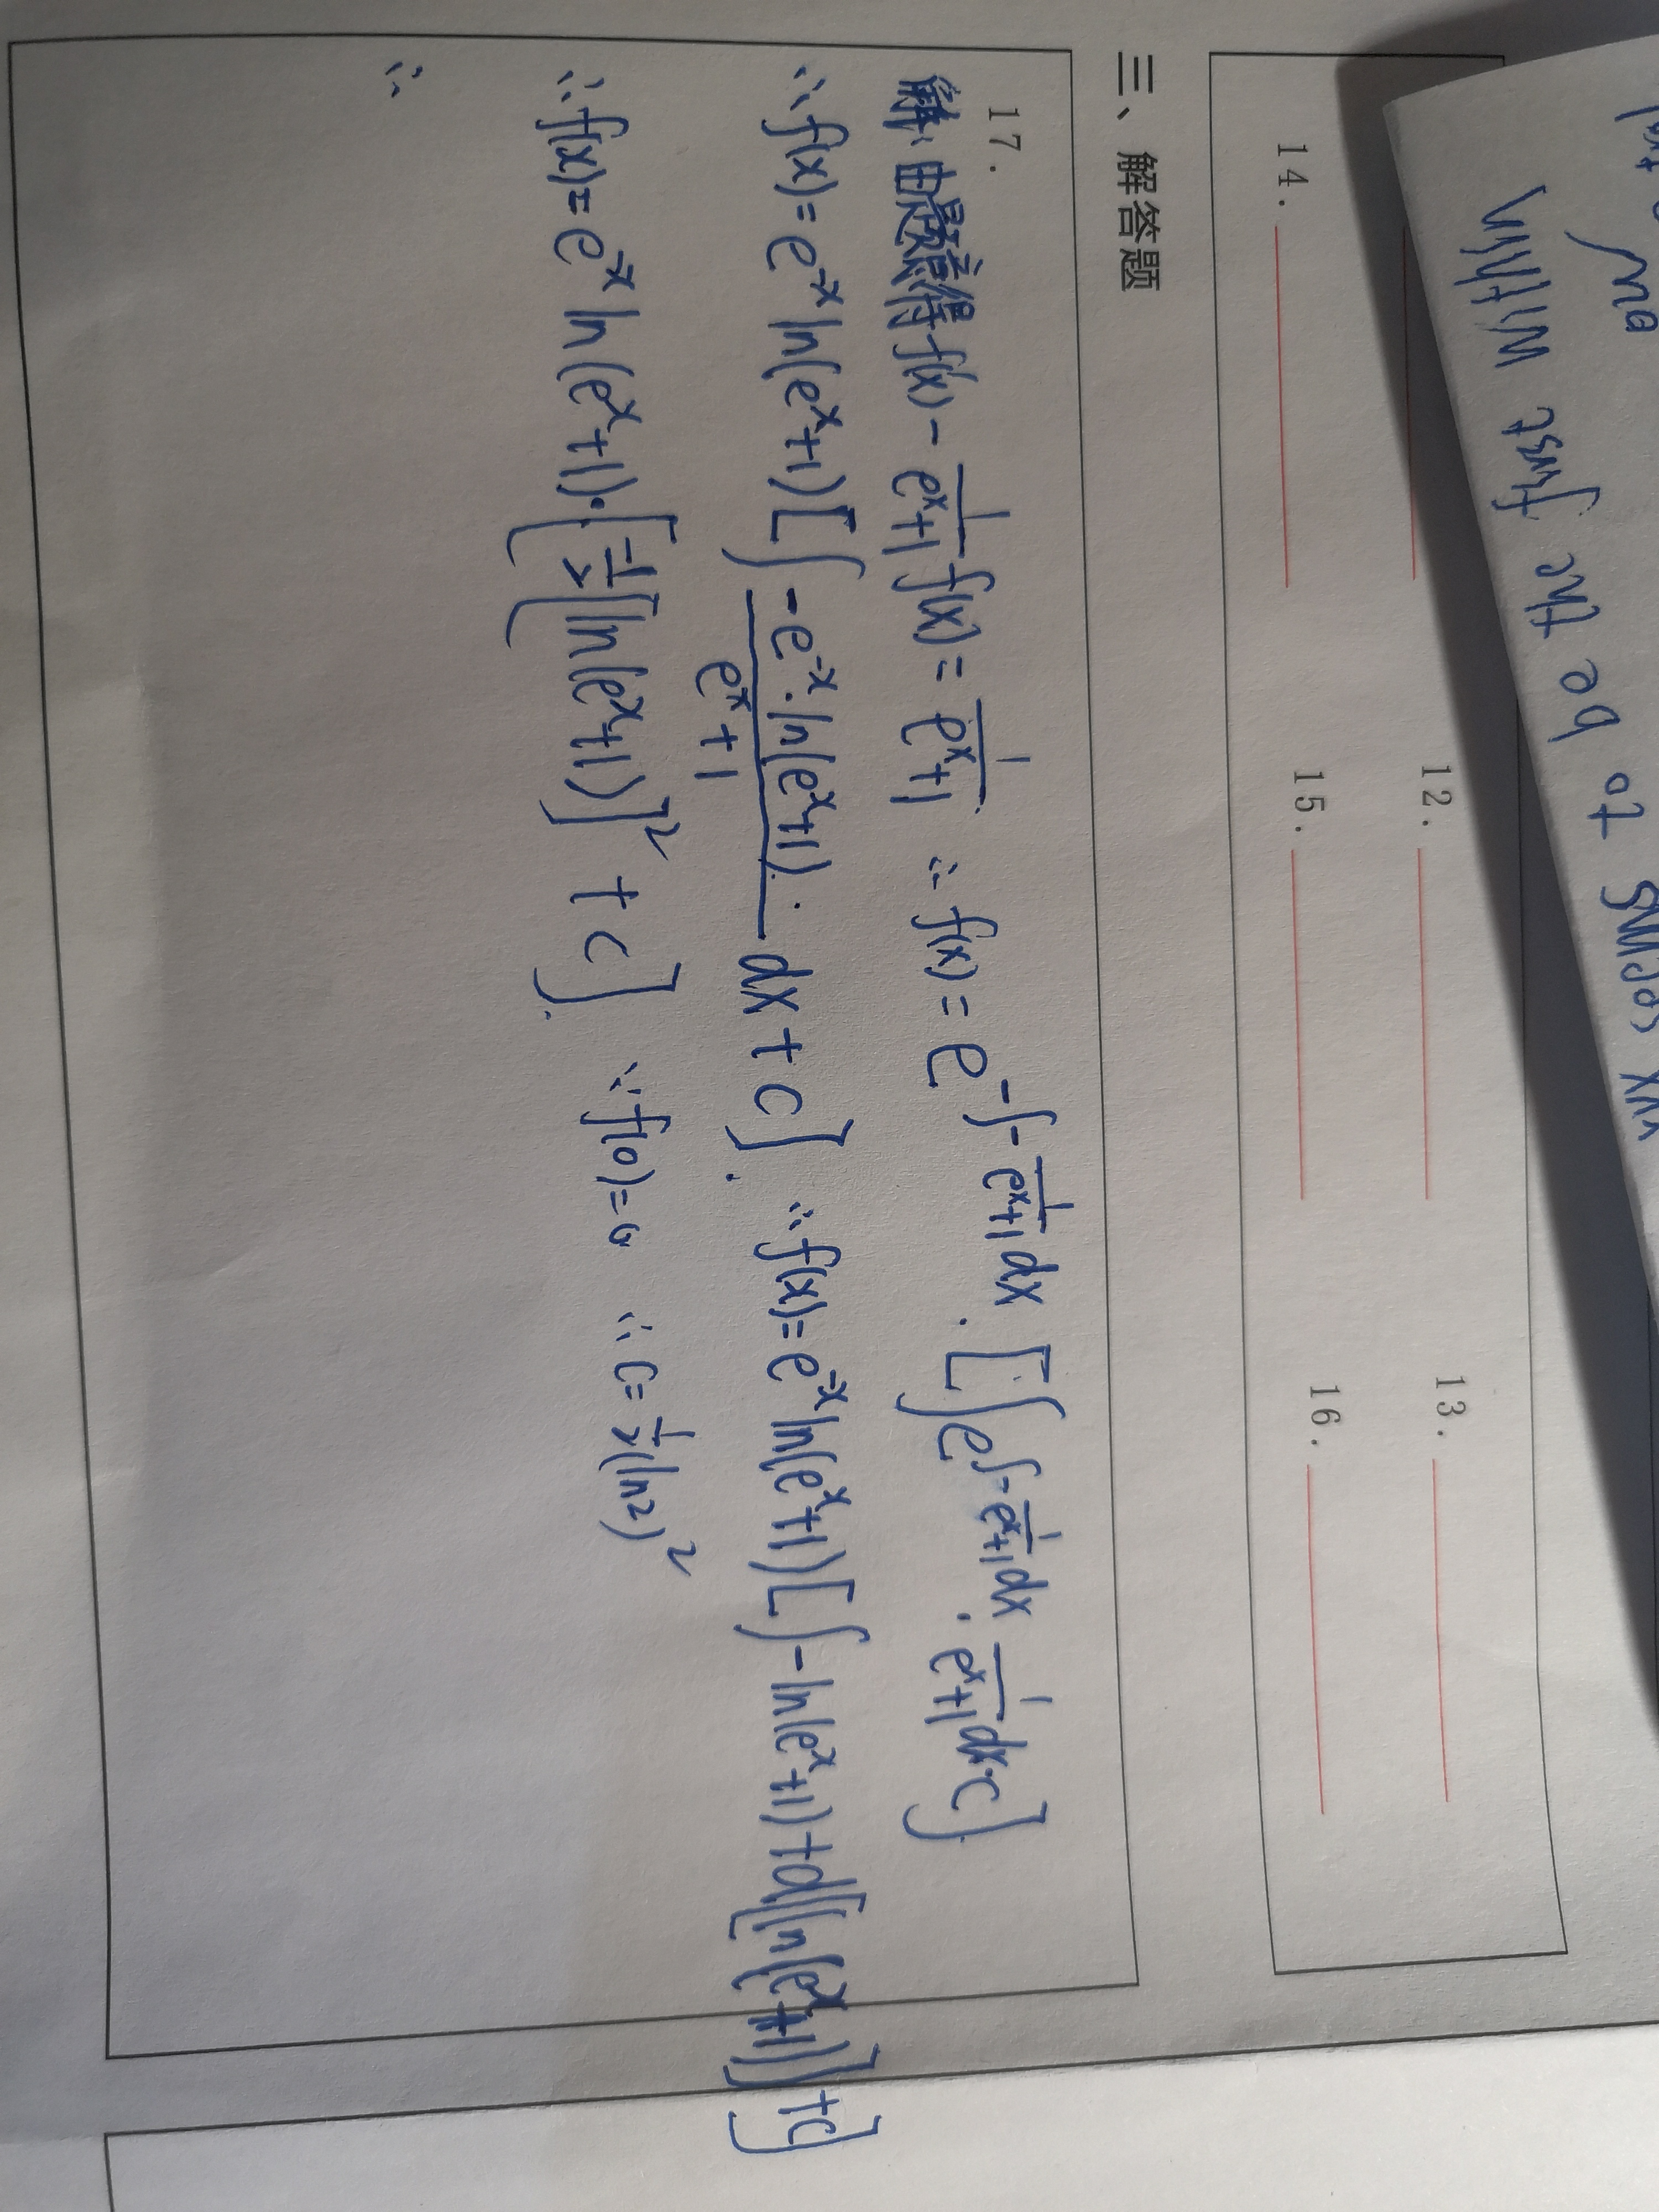 wx seems to be the first within
12.
13.
14.
15.
16.
三、解答题
17.
解: 由题意得 f'(x) - \frac{1}{e^x+1} f(x) = \frac{1}{e^x+1} ∴ f(x) = e^{-∫-\frac{1}{e^x+1}dx} · [∫e^{∫-\frac{1}{e^x+1}dx} · \frac{1}{e^x+1}dx·C]
∴ f(x) = e^{-x} ln(e^x+1) [∫ \frac{-e^{-x}·ln(e^x+1)·}{e^x+1} dx + C]. ∴ f(x) = e^{-x} ln(e^x+1) [∫ -ln(e^x+1) + d[ln(e^x+1)] + C]
∴ f(x) = e^{-x} ln(e^x+1)·[-\frac{1}{2}[ln(e^x+1)]^2 + C]. ∵ f(0)=0 ∴ C=\frac{1}{2}(ln2)^2
∴